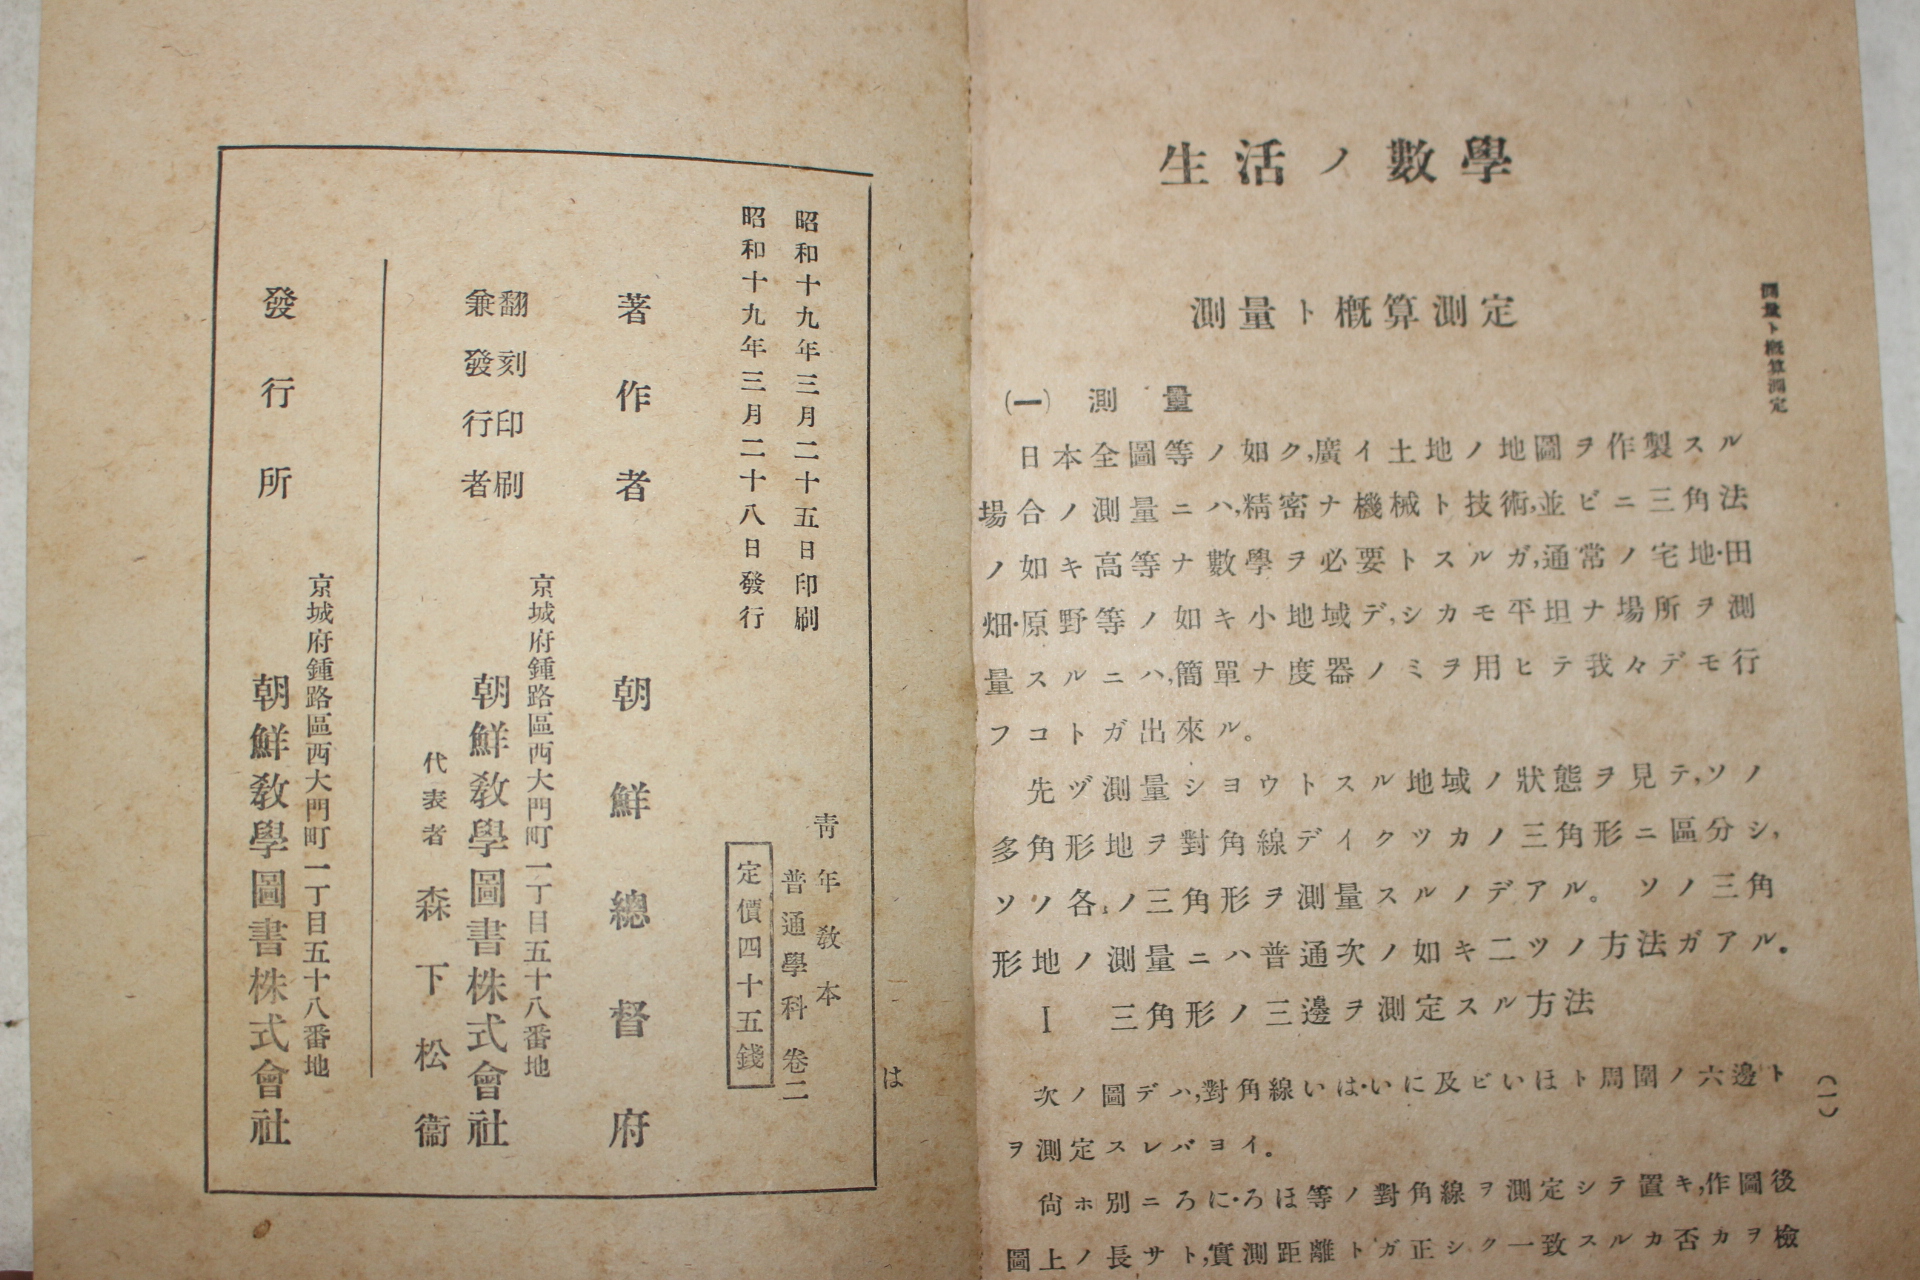 生活ノ數學
測量ト概算測定
測量ト概算測定
(一) 測量
日本全圖等ノ如ク,廣イ土地ノ地圖ヲ作製スル
場合ノ測量ニハ,精密ナ機械ト技術,並ビニ三角法
ノ如キ高等ナ數學ヲ必要トスルガ,通常ノ宅地・田
畑・原野等ノ如キ小地域デ,シカモ平坦ナ場所ヲ測
量スルニハ,簡單ナ度器ノミヲ用ヒテ我々デモ行
フコトガ出來ル。
先ヅ測量シヨウトスル地域ノ狀態ヲ見テ,ソノ
多角形地ヲ對角線デイクツカノ三角形ニ區分シ,
ソノ各ノ三角形ヲ測量スルノデアル。ソノ三角
形地ノ測量ニハ普通次ノ如キ二ツノ方法ガアル。
I 三角形ノ三邊ヲ測定スル方法
次ノ圖デハ,對角線いは・いに及ビいほト周圍ノ六邊ト
ヲ測定スレバヨイ。
尙ホ別ニろに・ろほ等ノ對角線ヲ測定シテ置キ,作圖後
圖上ノ長サト,實測距離トガ正シク一致スルカ否カヲ檢
(一)
は
昭和十九年三月二十五日印刷
昭和十九年三月二十八日發行
靑年敎本
普通學科 卷二
定價四十五錢
著作者 朝鮮總督府
翻刻印刷
兼發行者
京城府鍾路區西大門町一丁目五十八番地
朝鮮敎學圖書株式會社
代表者 森下松衞
發行所
京城府鍾路區西大門町一丁目五十八番地
朝鮮敎學圖書株式會社